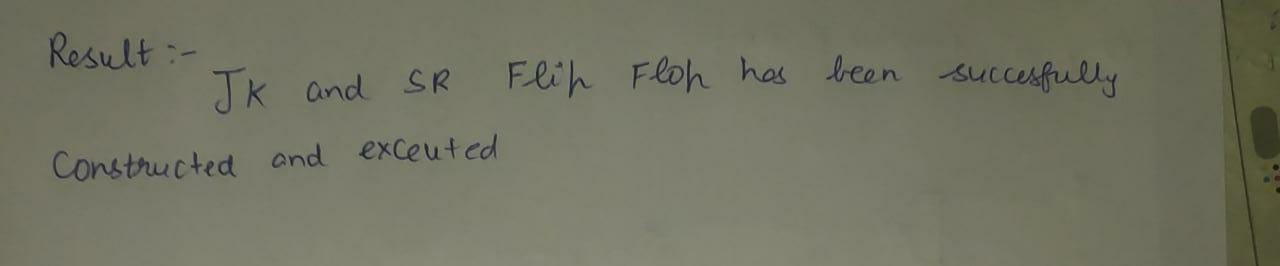 Result :-
JK and SR Flip Flop has been succesfully
Constructed and exceuted